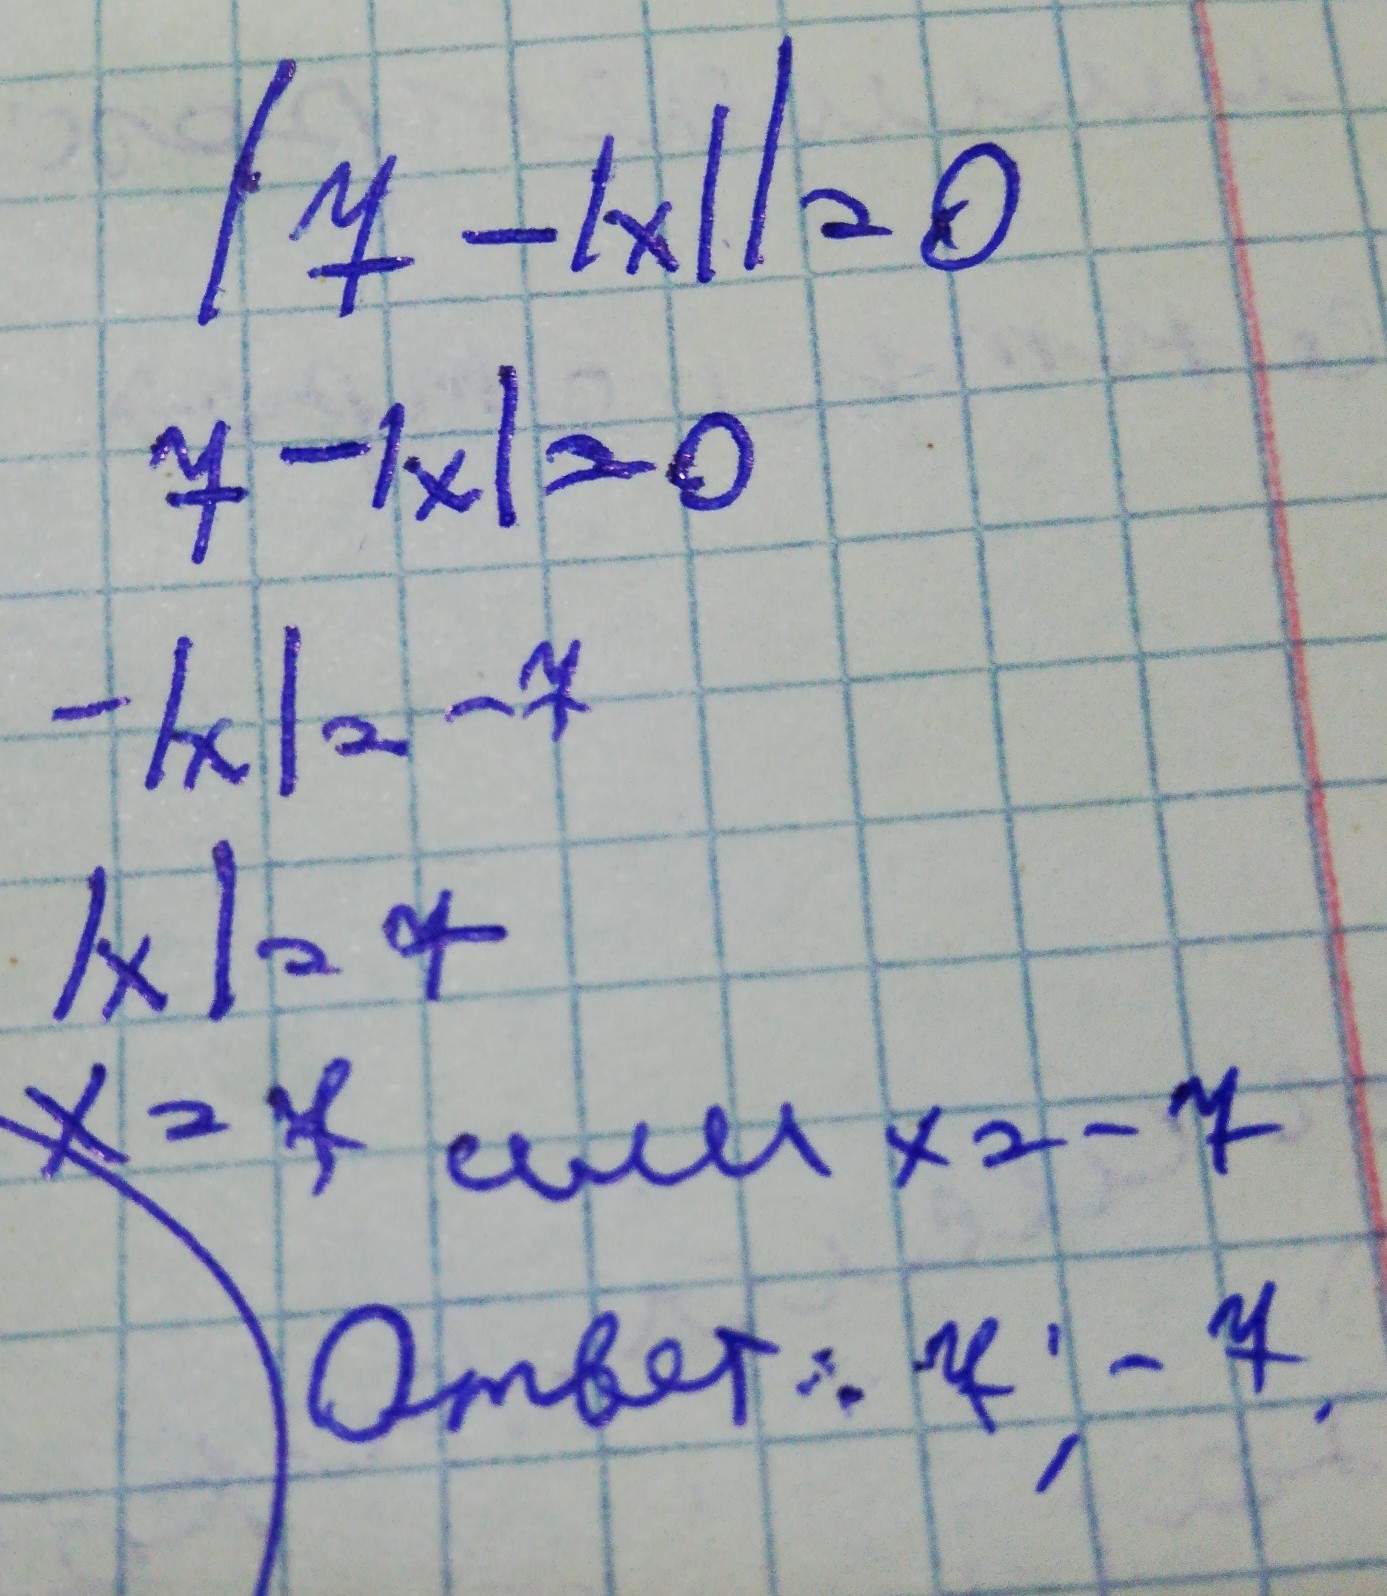 |7 - |x|| = 0
7 - |x| = 0
- |x| = -7
|x| = 7
x = 7 или x = -7
Ответ: 7; -7.